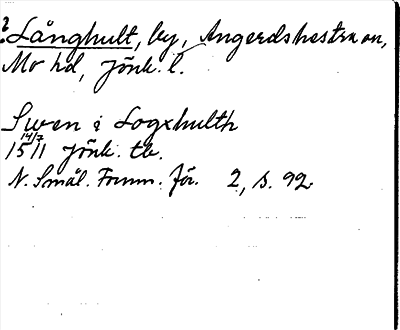 ? Långhult, by, Angerdshestra sn,
Mo hd, Jönk. l.
Swen i Logxhulth
15 14/7 11 Jönk. tb.
N. Smål. Fornm. för. 2, s. 92